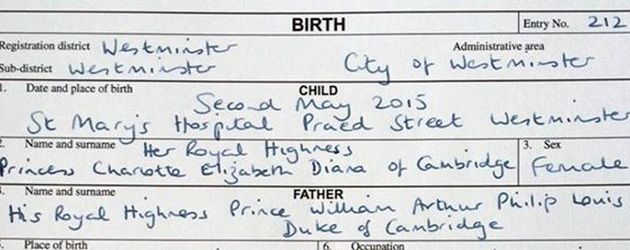 BIRTH Entry No. 212
Registration district Westminster Administrative area
Sub-district Westminster City of Westminster
1. Date and place of birth CHILD
Second May 2015
St Mary's Hospital Praed Street Westminster
2. Name and surname Her Royal Highness 3. Sex
Princess Charlotte Elizabeth Diana of Cambridge Female
4. Name and surname FATHER
His Royal Highness Prince William Arthur Philip Louis
Duke of Cambridge
5. Place of birth 6. Occupation